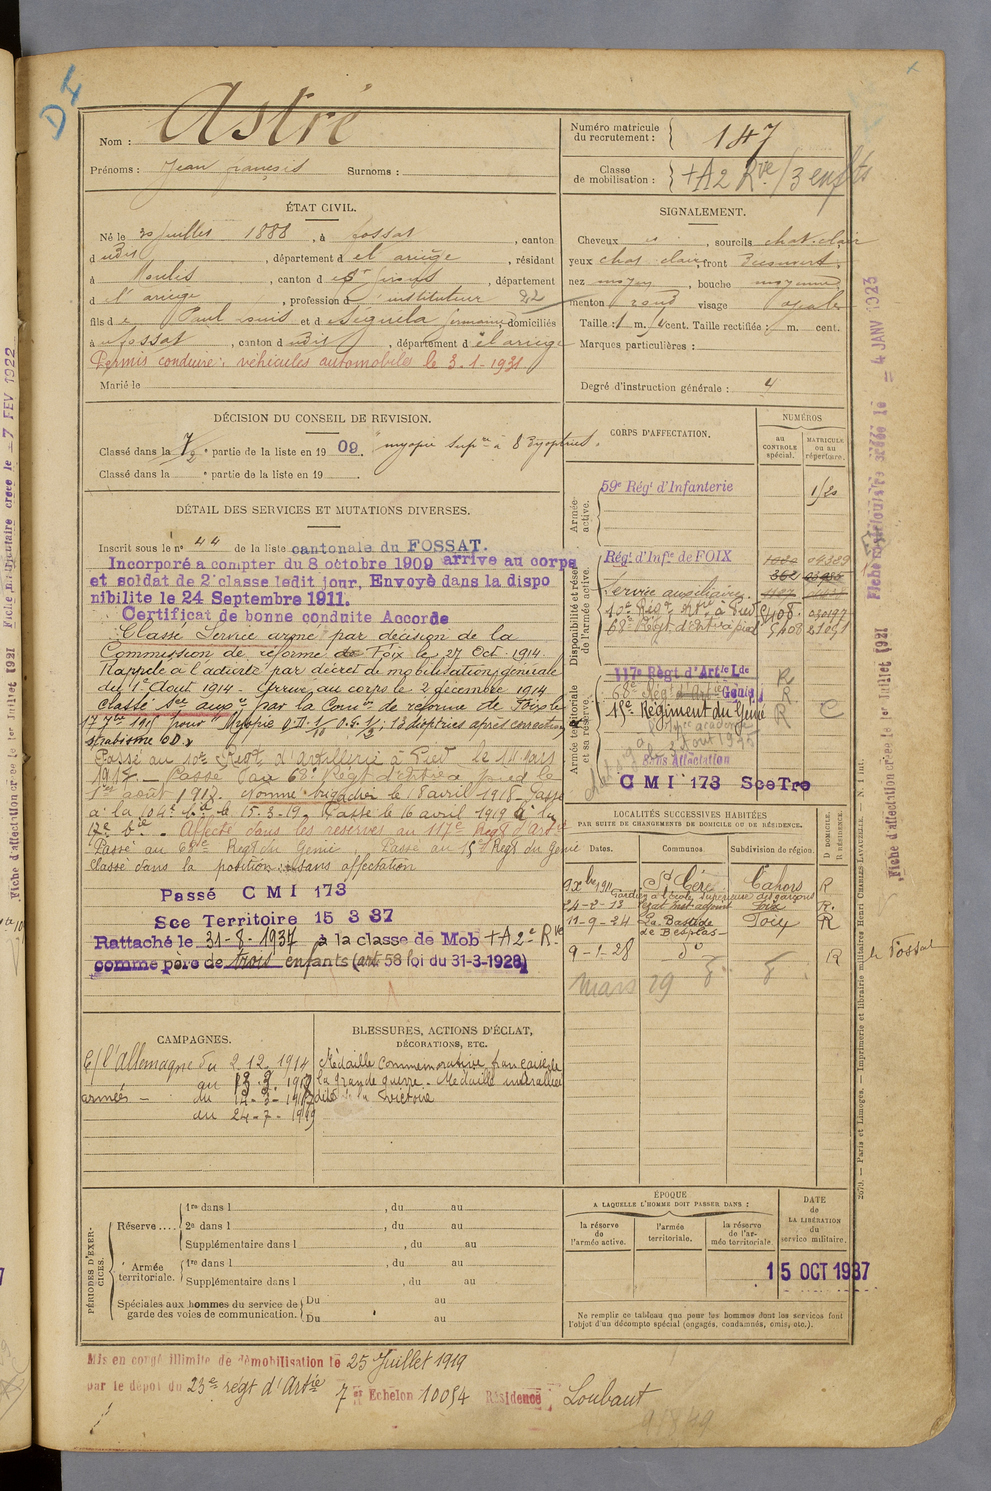 D I
Nom : Astré
Prénoms : Jean françois Surnoms :
Numéro matricule
du recrutement : 147
Classe
de mobilisation : +A2 Rve / 3 enfts
ÉTAT CIVIL.
Né le 30 juillet 1888, à fossat, canton
d udit, département d el ariège, résidant
à Moulis, canton d e St Girons, département
d el ariège, profession d instituteur 22
fils d e Paul Louis et d e Seguela germaine, domiciliés
à fossat, canton d udit, département d el ariège
Permis conduire : véhicules automobiles le 3.1.1931
Marié le
SIGNALEMENT.
Cheveux, sourcils chat. clair
yeux chat clair, front Decouvert,
nez moyen, bouche moyenne,
menton rond visage ovale
Taille : 1 m. cent. Taille rectifiée : m. cent.
Marques particulières :
Degré d'instruction générale : 4
DÉCISION DU CONSEIL DE REVISION.
Classé dans la 7/2e partie de la liste en 1909 "myopie supre à 8 dyoptries.
Classé dans la e partie de la liste en 19
DÉTAIL DES SERVICES ET MUTATIONS DIVERSES.
Inscrit sous le no 44 de la liste cantonale du FOSSAT.
Incorporé a compter du 8 octobre 1909 arrivé au corps
et soldat de 2e classe ledit jour, Envoyé dans la dispo
nibilite le 24 Septembre 1911.
Certificat de bonne conduite Accordé
Classé Service armé par décision de la
Commission de réforme de Foix le 27 Oct. 1914.
Rappelé à l'activité par décret de mobilisation générale
du 1er Aout 1914 - Arrivé au corps le 2 décembre 1914
Classé Sce auxre par la Comon de réforme de Foix le
17 7bre 1915 pour "Myopie O.D. 1/10 O.G. 1/2; 13 dioptries après correction
strabisme O.D.
Passé au 10e Regt d'Artillerie à Pied le 14 mars
1917. - Passé au 68e Régt d'artrie à pied le
1er août 1917. Nommé brigadier le 18 avril 1918. Passé
à la 104e Bie le 15-3-19. Passé le 16 avril 1919 à la
12e Bie. Affecté dans les réserves au 117e Regt d'Artie
Passé au 68e Regt du Génie. Passé au 15e Regt du Génie
Classé dans la position sans affectation
Passé C M I 173
Sce Territoire 15 3 37
Rattaché le 31-8-1937 à la classe de Mob +A2e Rve
comme père de trois enfants (art 58 loi du 31-3-1928)
CORPS D'AFFECTATION.
NUMÉROS
au
CONTROLE
spécial.
MATRICULE
ou au
répertoire.
Armée
active.
59e Régt d'Infanterie
Disponibilité et réserve
de l'armée active.
Régt d'Infie de FOIX 04389
362
Service auxiliaire.
10e Régt Artie à Pied 5408 020199
68e Régt d'Artrie à pied 5408 21051
Armée territoriale
et sa réserve.
117e Régt d'Artie Lde R
68e Régt d'Artie Génie R
15e Régiment du Génie R C
Sans Affectation
C M I 173 Sce Tre
LOCALITÉS SUCCESSIVES HABITÉES
PAR SUITE DE CHANGEMENTS DE DOMICILE OU DE RÉSIDENCE.
Dates. Communes. Subdivision de région. D DOMICILE. R RÉSIDENCE.
9 Xbre 1911 St Céré Cahors R
à l'école supérieure des garçons
24-2-13 Foix R.
11-9-24 La Bastide Foix R
de Besplas
9-1-28 do R le Fossat
Mars 29
CAMPAGNES.
C/ l'Allemagne du 2.12.1914
au 13.3.1917
armées - du 14-3-1917
au 24-7-1919
BLESSURES, ACTIONS D'ÉCLAT,
DÉCORATIONS, ETC.
Médaille commemorative française de
la grande guerre. Medaille interalliée
dite de la Victoire
PÉRIODES D'EXERCICES.
Réserve....
1re dans l, du au
2e dans l, du au
Supplémentaire dans l, du au
Armée
territoriale.
1re dans l, du au
Supplémentaire dans l, du au
Spéciales aux hommes du service de
garde des voies de communication.
Du au
Du au
ÉPOQUE
A LAQUELLE L'HOMME DOIT PASSER DANS :
la réserve
de
l'armée active.
l'armée
territoriale.
la réserve
de l'ar-
mée territoriale.
DATE
de
LA LIBÉRATION
du
service militaire.
15 OCT 1937
Ne remplir ce tableau que pour les hommes dont les services font
l'objet d'un décompte spécial (engagés, condamnés, omis, etc.).
Mis en congé illimité de démobilisation le 25 Juillet 1919
par le dépôt du 23e régt d'Artie 7e Echelon 10054 Résidence : Loubaut
Fiche matriculaire créée le - 4 JANV 1923
Fiche d'affectation créée le 1er Juillet 1921
2679. — Paris et Limoges. — Imprimerie et librairie militaires Henri CHARLES-LAVAUZELLE. — N. 1 int.
Fiche matriculaire créée le - 7 FEV 1922
Fiche d'affectation créée le 1er Juillet 1921